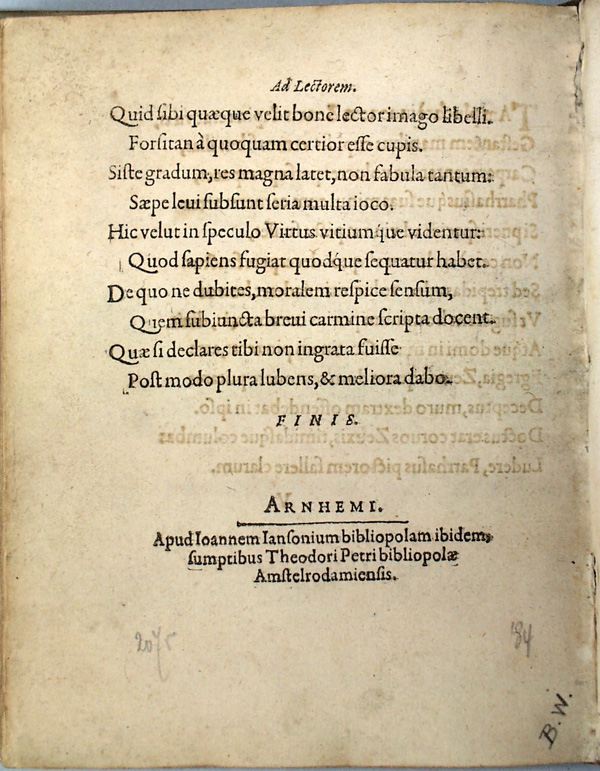 Ad Lectorem.
Quid sibi quæque velit bone lector imago libelli.
Forsitan à quoquam certior esse cupis.
Siste gradum, res magna latet, non fabula tantum:
Sæpe leui subsunt seria multa ioco.
Hic velut in speculo Virtus vitiumque videntur:
Quod sapiens fugiat quodque sequatur habet.
De quo ne dubites, moralem respice sensum,
Quem subiuncta breui carmine scripta docent.
Quæ si declares tibi non ingrata fuisse
Post modo plura lubens, & meliora dabo.
FINIS.
ARNHEMI.
Apud Ioannem Iansonium bibliopolam ibidem,
sumptibus Theodori Petri bibliopolæ
Amstelrodamiensis.
2075
'84
B.W.